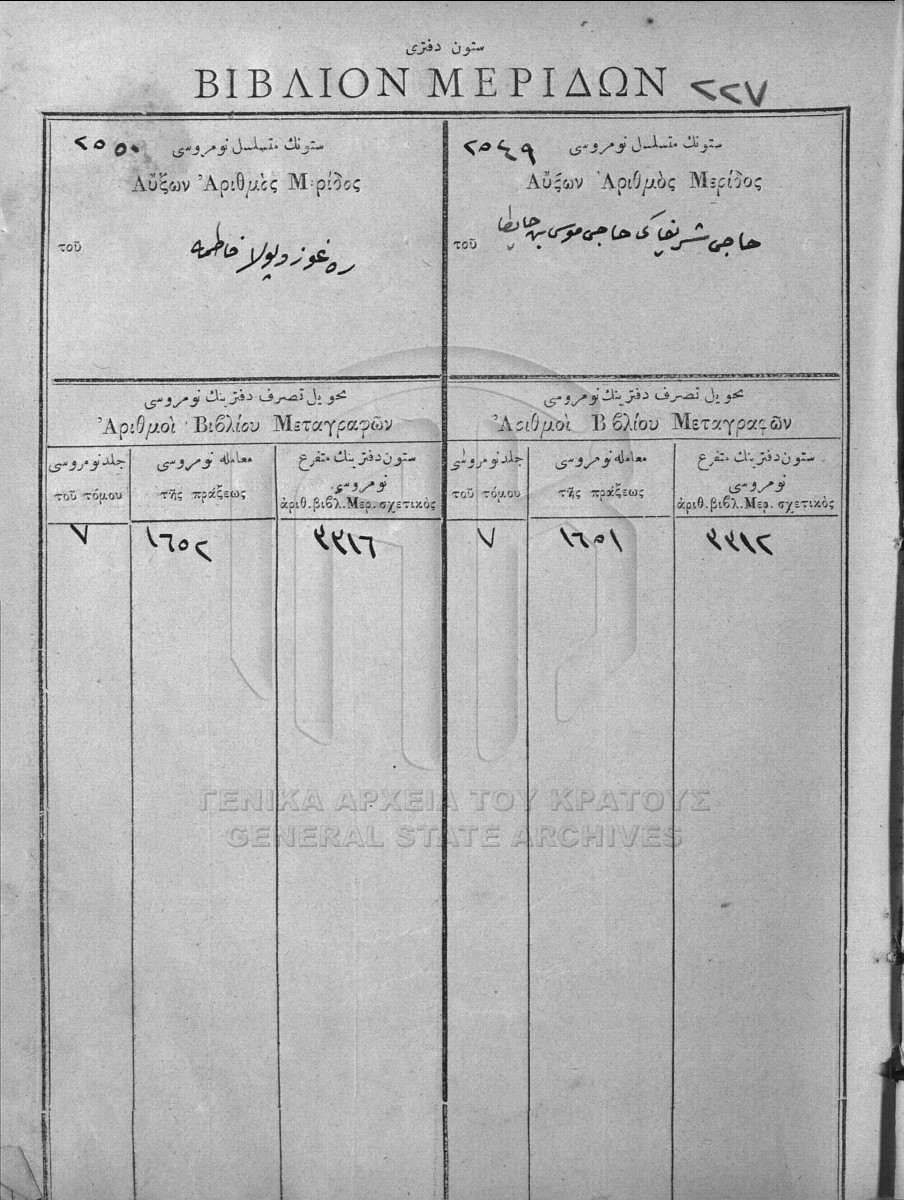 ستون دفتری
ΒΙΒΛΙΟΝ ΜΕΡΙΔΩΝ ٢٢٧
ستونك متسلسل نومروسی ٢٥٤٩
Αὔξων Ἀριθμὸς Μερίδος
τοῦ
حاجی شریفاكی حاجی موسی بن
تحویل تصرف دفترینك نومروسی
Ἀριθμοὶ Βιβλίου Μεταγραφῶν
ستون دفترینك متفرع نومروسی
ἀριθ. βιβλ. Μερ. σχετικὸς
معامله نومروسی
τῆς πράξεως
جلد نومروسی
τοῦ τόμου
٣٣١٢
١٦٥١
٧
ستونك متسلسل نومروسی ٢٥٥٠
Αὔξων Ἀριθμὸς Μερίδος
τοῦ
فاطمه
تحویل تصرف دفترینك نومروسی
Ἀριθμοὶ Βιβλίου Μεταγραφῶν
ستون دفترینك متفرع نومروسی
ἀριθ. βιβλ. Μερ. σχετικὸς
معامله نومروسی
τῆς πράξεως
جلد نومروسی
τοῦ τόμου
٣٣١٦
١٦٥٢
٧
ΓΕΝΙΚΑ ΑΡΧΕΙΑ ΤΟΥ ΚΡΑΤΟΥΣ
GENERAL STATE ARCHIVES